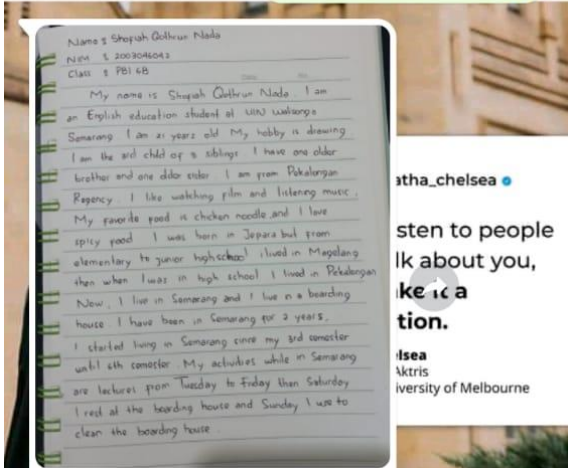 Name : Shofiah Qothrun Nada
NIM : 2003046042
Class : PBI 6B
My name is Shofiah Qothrun Nada. I am
an English education student at UIN Walisongo
Semarang I am 21 years old My hobby is drawing
I am the 3rd child of 3 siblings I have one older
brother and one older sister. I am from Pekalongan
Regency. I like watching film and listening music.
My favorite food is chicken noodle and I love
spicy food I was born in Jepara but from
elementary to junior highschool i lived in Magelang
then when I was in high school I lived in Pekalongan
Now, I live in Semarang and I live in a boarding
house I have been in Semarang for 2 years.
I started living in Semarang since my 3rd semester
until 6th semester. My activities while in Semarang
are lectures from Tuesday to Friday than Saturday
I rest at the boarding house and Sunday I use to
clean the boarding house.
atha_chelsea
sten to people
lk about you,
ke it a
tion.
elsea
Aktris
iversity of Melbourne